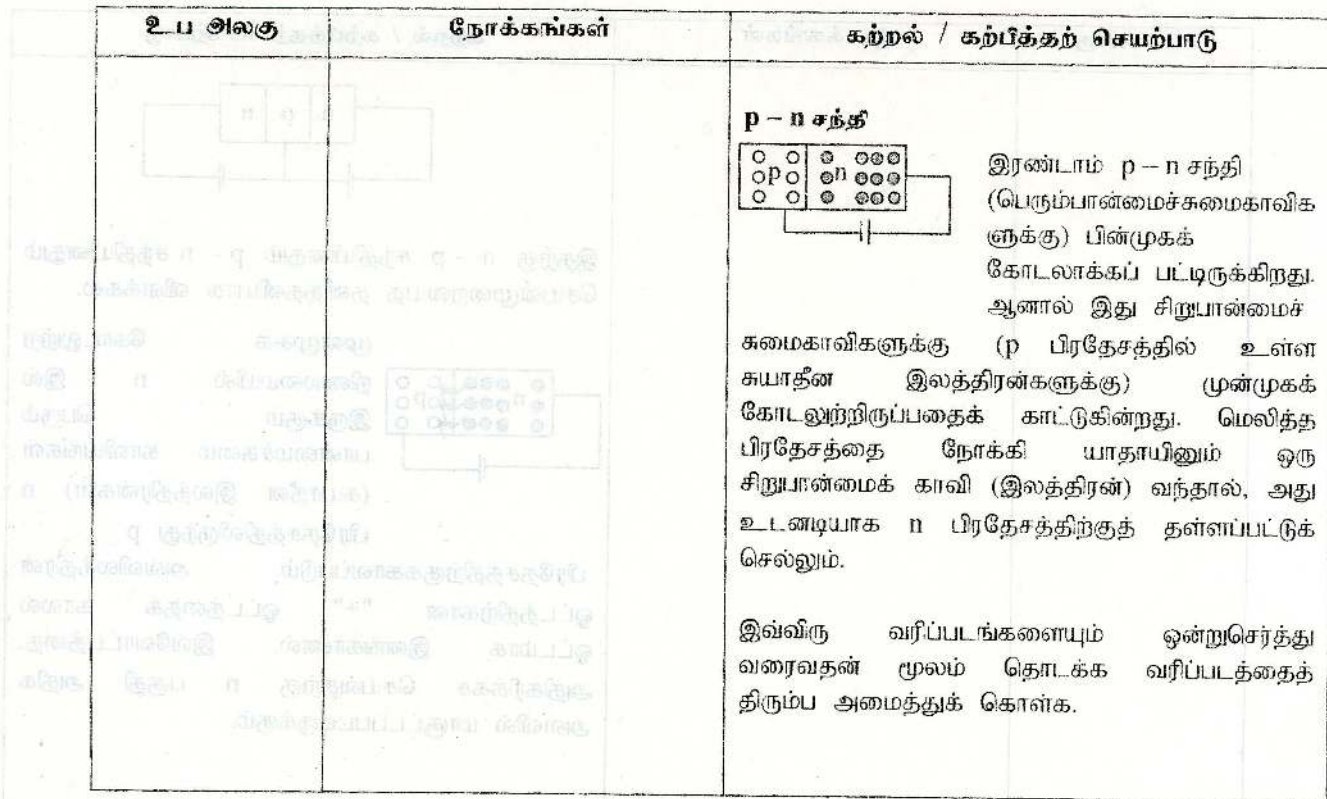 உ ப அலகு நோக்கங்கள் கற்றல் / கற்பித்தற் செயற்பாடு
p – n சந்தி
p n
இரண்டாம் p – n சந்தி
(பெரும்பான்மைச்சுமைகாவிக
ளுக்கு) பின்முகக்
கோடலாக்கப் பட்டிருக்கிறது.
ஆனால் இது சிறுபான்மைச்
சுமைகாவிகளுக்கு (p பிரதேசத்தில் உள்ள
சுயாதீன இலத்திரன்களுக்கு) முன்முகக்
கோடலுற்றிருப்பதைக் காட்டுகின்றது. மெலித்த
பிரதேசத்தை நோக்கி யாதாயினும் ஒரு
சிறுபான்மைக் காவி (இலத்திரன்) வந்தால், அது
உடனடியாக n பிரதேசத்திற்குத் தள்ளப்பட்டுக்
செல்லும்.
இவ்விரு வரிப்படங்களையும் ஒன்றுசெர்த்து
வரைவதன் மூலம் தொடக்க வரிப்படத்தைத்
திரும்ப அமைத்துக் கொள்க.